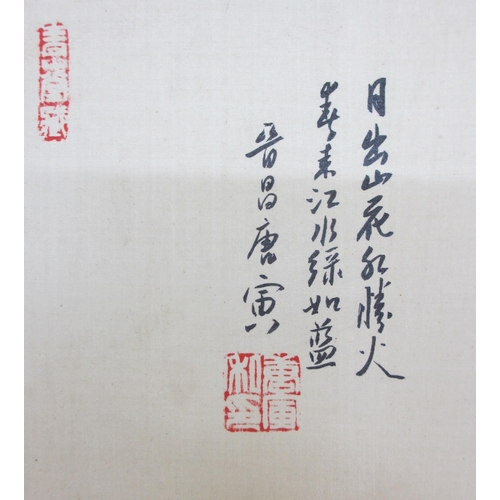 日出山花红勝火
春来江水绿如蓝
晋昌唐寅
唐寅私印